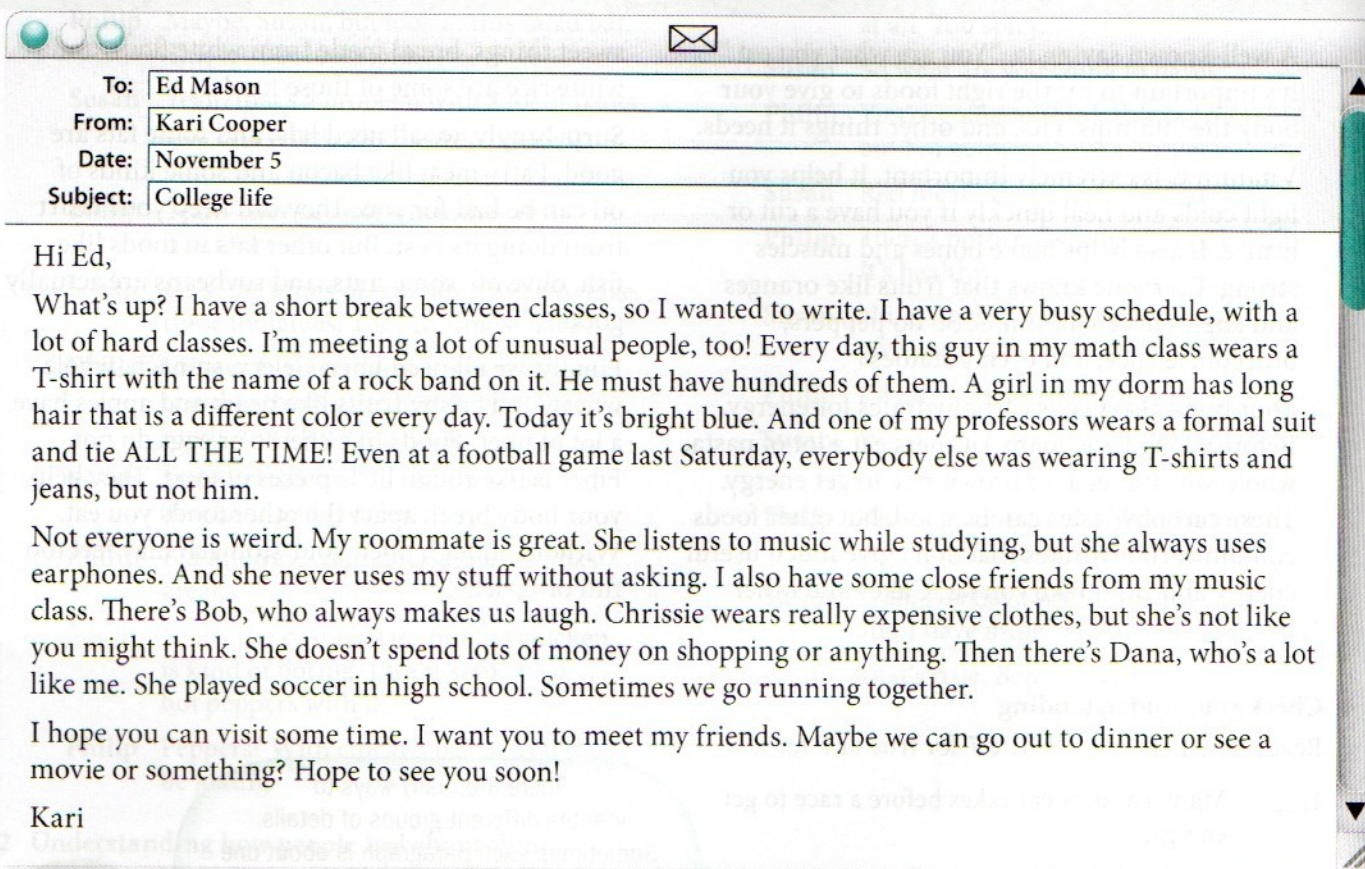 To: Ed Mason
From: Kari Cooper
Date: November 5
Subject: College life
Hi Ed,
What's up? I have a short break between classes, so I wanted to write. I have a very busy schedule, with a
lot of hard classes. I'm meeting a lot of unusual people, too! Every day, this guy in my math class wears a
T-shirt with the name of a rock band on it. He must have hundreds of them. A girl in my dorm has long
hair that is a different color every day. Today it's bright blue. And one of my professors wears a formal suit
and tie ALL THE TIME! Even at a football game last Saturday, everybody else was wearing T-shirts and
jeans, but not him.
Not everyone is weird. My roommate is great. She listens to music while studying, but she always uses
earphones. And she never uses my stuff without asking. I also have some close friends from my music
class. There's Bob, who always makes us laugh. Chrissie wears really expensive clothes, but she's not like
you might think. She doesn't spend lots of money on shopping or anything. Then there's Dana, who's a lot
like me. She played soccer in high school. Sometimes we go running together.
I hope you can visit some time. I want you to meet my friends. Maybe we can go out to dinner or see a
movie or something? Hope to see you soon!
Kari